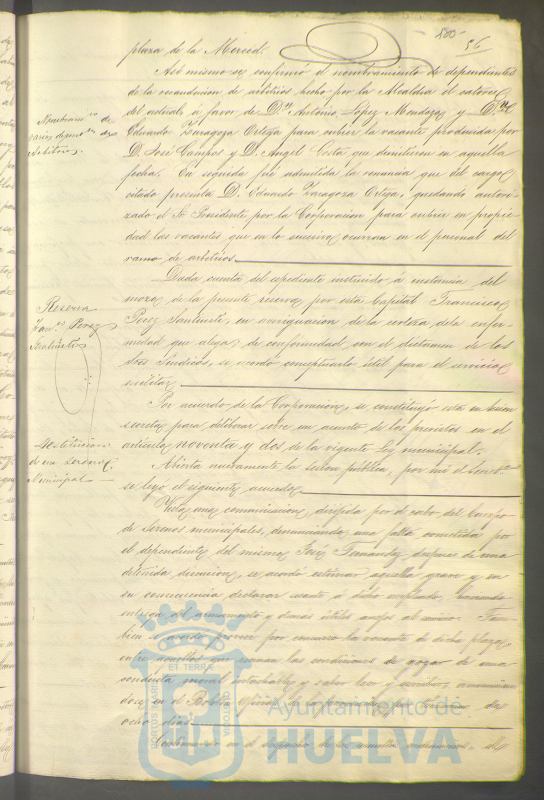 500
56
plaza de la Merced.
Asi mismo se confirmó el nombramiento de dependientes
de la recaudacion de arbitrios hecho por la Alcaldia el catorce
del actual, á favor de D. Antonio Lopez Mendoza y D.
Eduardo Zaragoza Ortega para cubrir la vacante producida por
D. José Campos y D. Angel Costa que dimitieron en aquella
fecha. En seguida fue admitida la renuncia que del cargo
citado presenta D. Eduardo Zaragoza Ortega, quedando autori-
zado el Sr. Presidente por la Corporacion para cubrir en propie-
dad las vacantes que en lo sucesivo ocurran en el personal del
ramo de arbitrios.
Reserva
Dada cuenta del expediente instruido á instancia del
mozo de la presente reserva por esta Capital Francisco
Perez Santiesté, en averiguacion de la certeza de la enfer-
medad que alega; de conformidad con el dictamen de los
dos Sindicos, se acordó conceptuarlo útil para el servicio
militar.
Destitucion
de un sereno
Municipal
Por acuerdo de la Corporacion, se constituyó esta en sesion
secreta para deliberar sobre un asunto de los previstos en el
articulo noventa y dos de la vigente Ley municipal.
Abierta nuevamente la sesion pública, por mi el Secret.
se leyó el siguiente acuerdo
Vista una comunicacion dirigida por el cabo del Cuerpo
de Serenos municipales, denunciando una falta cometida por
el dependiente del mismo José Fernandez despues de una
detenida discusion, se acordó estimar aquella grave y en
su consecuencia declarar cesante á dicho empleado, haciendo
entrega del armamento y demas útiles anejos al mismo. Tam-
bien se acordó proveer por concurso la vacante de dicha plaza,
entre aquellos que reunan las condiciones de gozar de una
conducta moral intachable y saber leer y escribir, anuncian-
dose en el Boletin oficial de la provincia por término de
ocho dias.
Continuando en el despacho de los asuntos ordinarios, el
PORTUS MARIS
ET TERRÆ
CUSTODIA
Ayuntamiento de
HUELVA